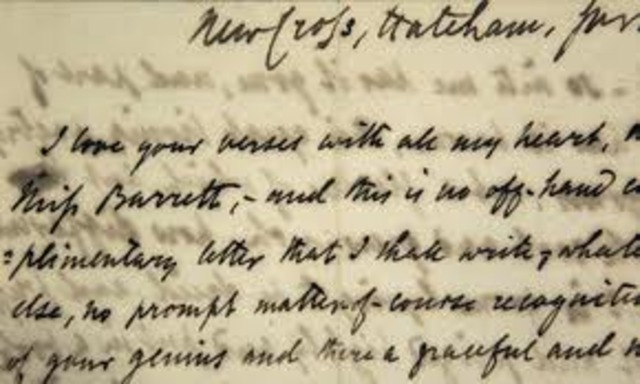 New Cross, Hatcham, Sur
I love your verses with all my heart,
Miss Barrett, - and this is no off-hand c
=plimentary letter that I shall write, - whate
else, no prompt matter-of-course recognitio
of your genius and there a graceful and n